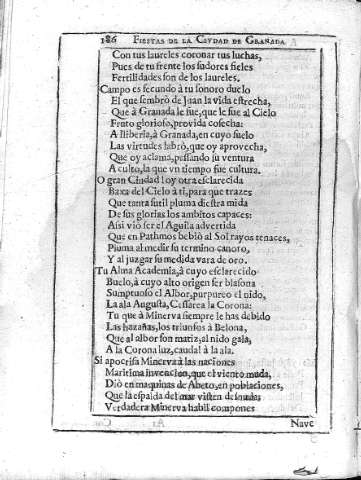 186 FIESTAS DE LA CIVDAD DE GRANADA
Con tus laureles coronar tus luchas,
Pues de tu frente los sudores fieles
Fertilidades son de los laureles,
Campo es fecundo à tu sonoro duelo
El que sembrò de Juan la vida estrecha,
Que à Granada le fue, que le fue al Cielo
Fruto glorioso, provida cosecha:
A Iliberia, à Granada, en cuyo suelo
Las virtudes labrò, que oy aprovecha,
Que oy aclama, passando su ventura
A culto, la que vn tiempo fue cultura.
O gran Ciudad! oy otra esclarecida
Baxa del Cielo à ti, para que trazes
Que tanta sutil pluma diestra mida
De sus glorias los ambitos capaces:
Assi viò ser el Aguila advertida
Que en Pathmos bebiò al Sol rayos tenaces,
Pluma al medir su termino canoro,
Y al juzgar su medida vara de oro.
Tu Alma Academia, à cuyo esclarecido
Buelo, à cuyo alto origen ser blasona
Sumptuoso el Albor, purpureo el nido,
La ala Augusta, Cesarea la Corona:
Tu que à Minerva siempre le has debido
Las hazañas, los triunfos à Belona,
Que al albor son matiz, al nido gala,
A la Corona luz, caudal à la ala.
Si apocrifa Minerva à las naciones
Maritima invencion, que el viento muda,
Diò en maquinas de Abeto, en poblaciones,
Que la espalda del mar visten desnuda;
Verdadera Minerva habil compones
Nave